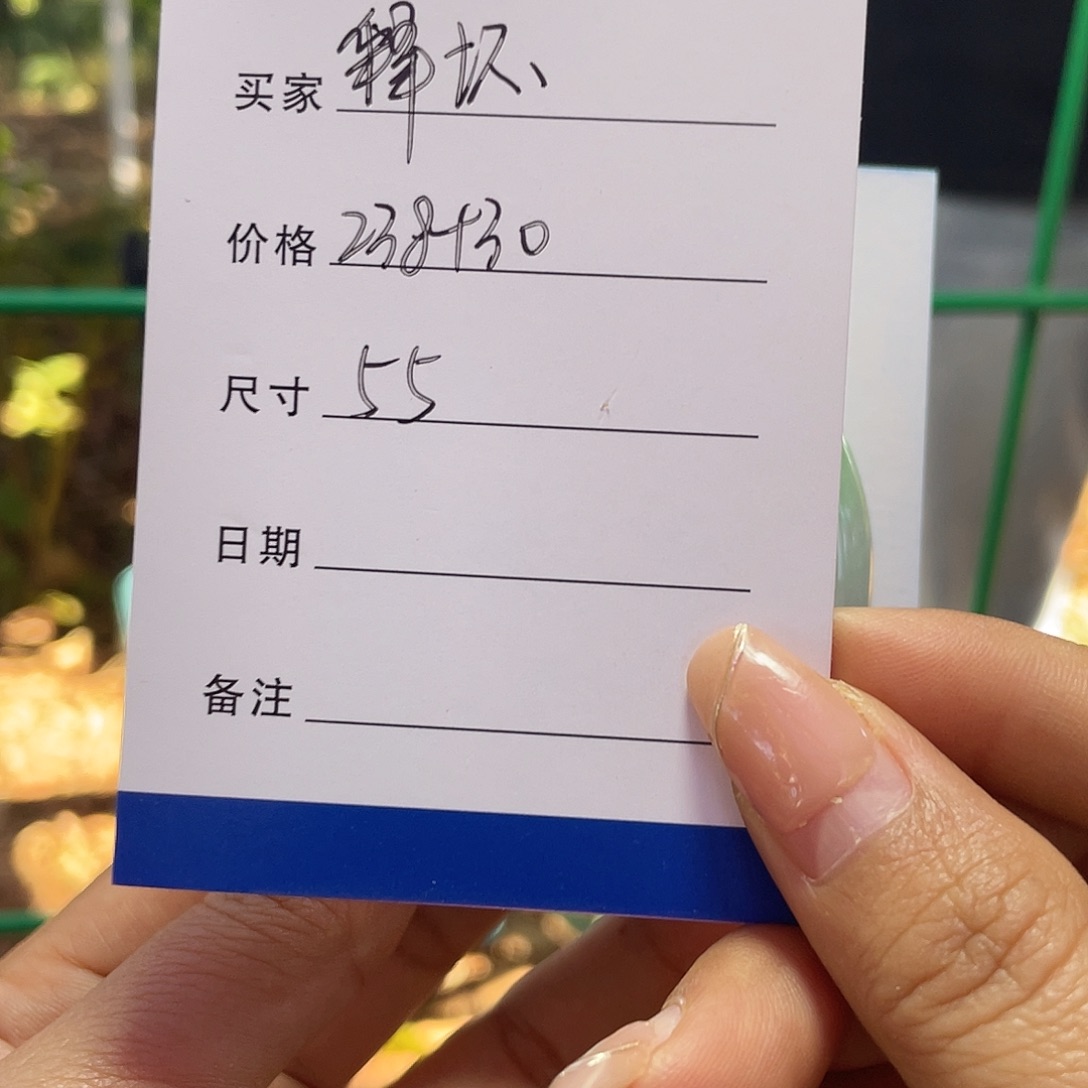 买家 释怀、
价格 238+30
尺寸 55
日期
备注